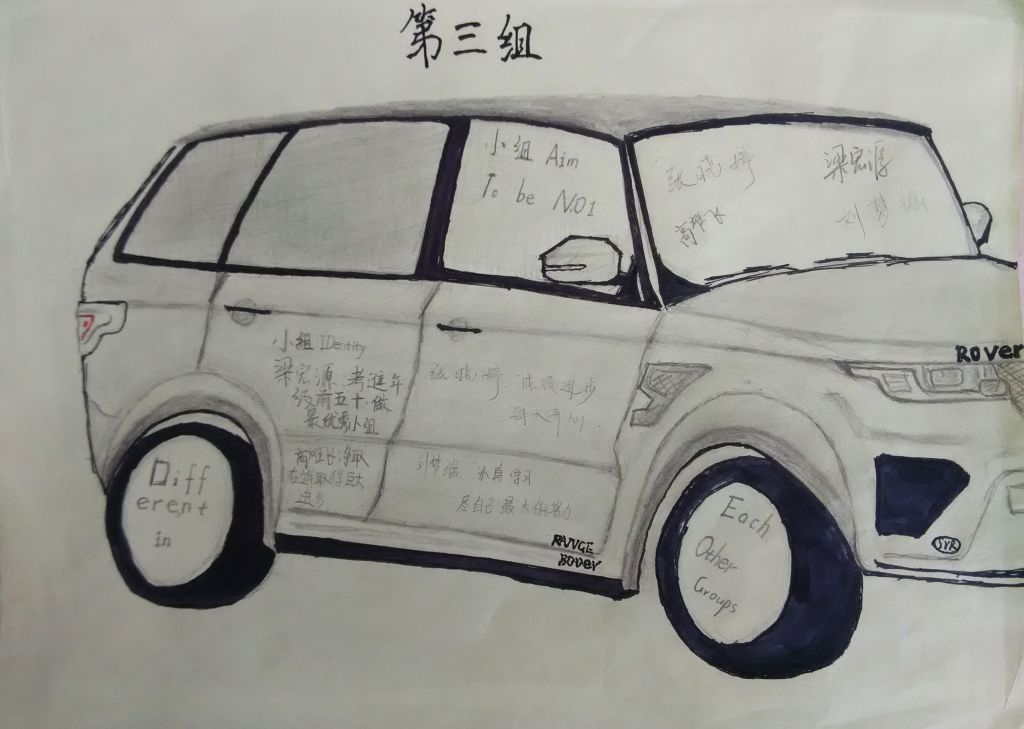 第三组
小组 Aim
To be NO1
张晓婷
梁宏源
高雄飞
刘梦
ROVer
小组 IDentity
梁宏源:考进年
级前五十,做
最优秀小组
张晓婷:成绩进步
每天开心.
高雄飞:争取
在年取得巨大
进步
刘梦 求真学习
尽自己最大的努力
RANGE
ROVer
SVR
Different
in
Each
Other
Groups